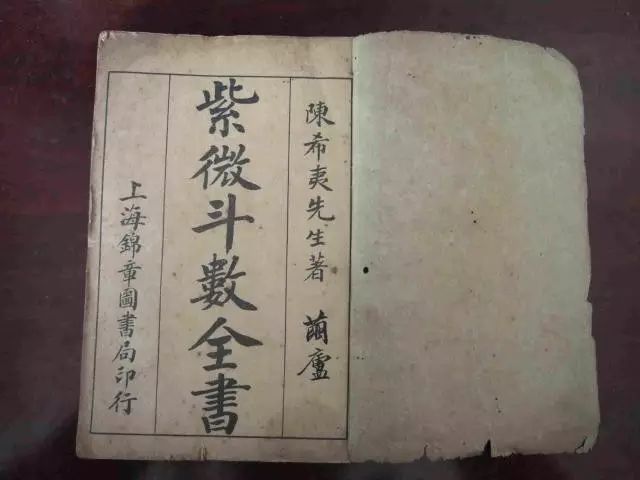 陳希夷先生著 繭廬
紫微斗數全書
上海錦章圖書局印行